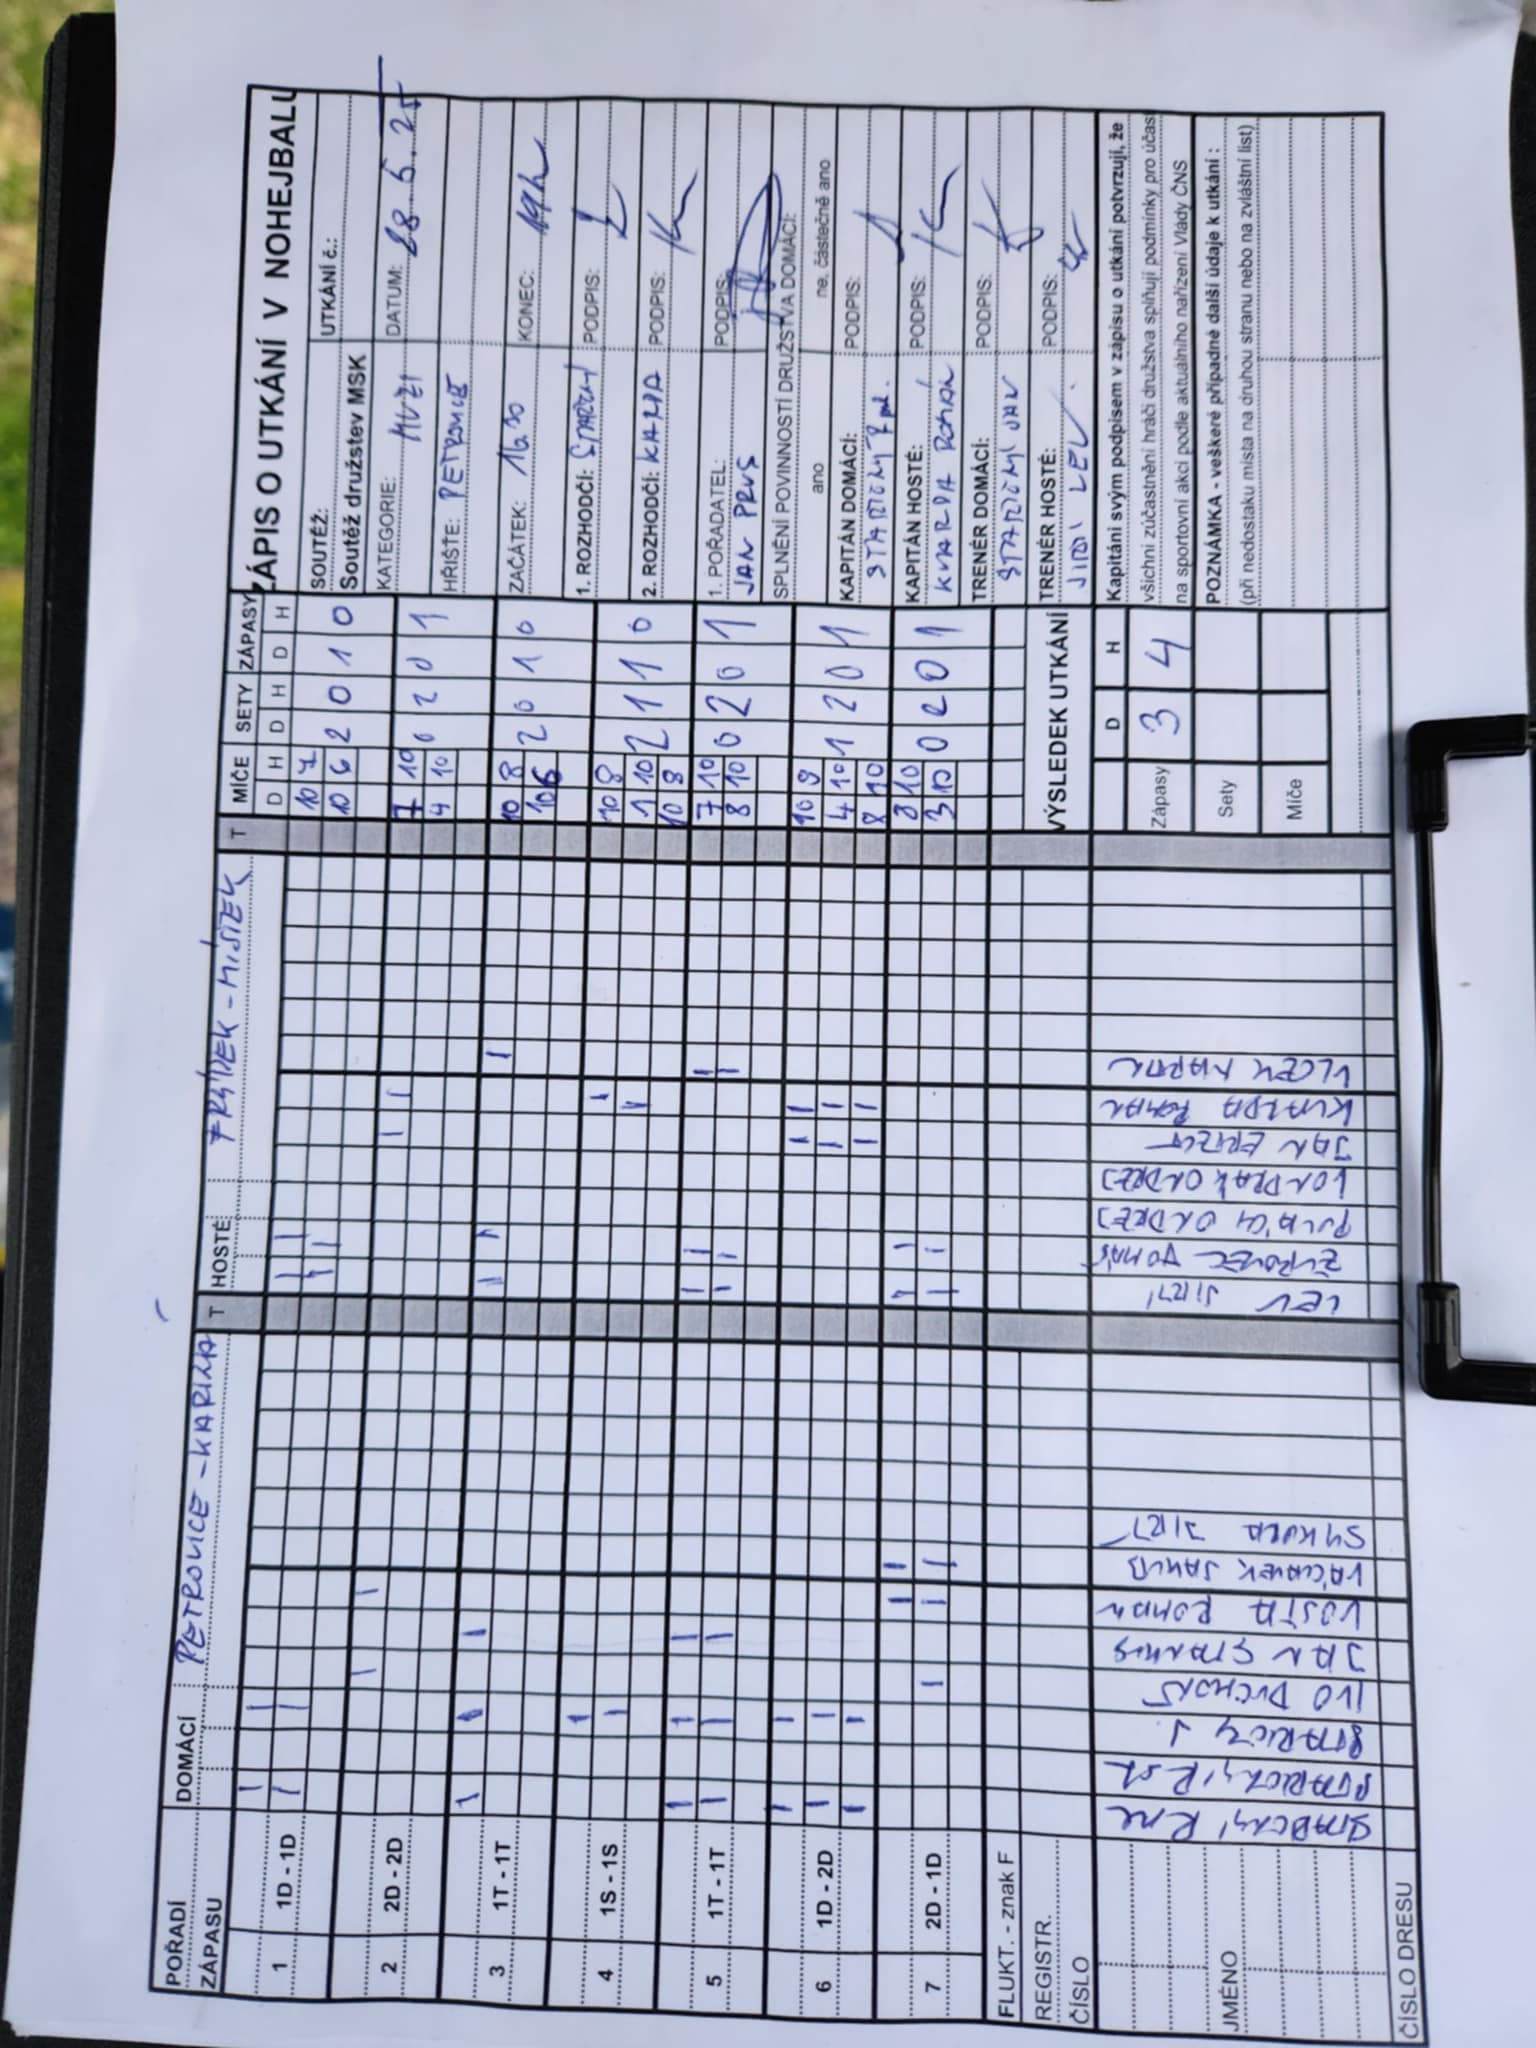 ZÁPIS O UTKÁNÍ V NOHEJBALU
PETROVICE - KARINA
FRÝDEK - MÍSTEK
POŘADÍ ZÁPASU
DOMÁCÍ
T
HOSTÉ
T
MÍČE SETY ZÁPASY
D H D H D H
1 1D - 1D
10 7
10 6 2 0 1 0
2 2D - 2D
7 10
4 10 0 2 0 1
3 1T - 1T
10 8
10 6 2 0 1 0
4 1S - 1S
10 8
1 10
10 8 2 1 1 0
5 1T - 1T
7 10
8 10 0 2 0 1
6 1D - 2D
10 9
4 10
8 10 1 2 0 1
7 2D - 1D
8 10
3 10 0 2 0 1
FLUKT. - znak F
REGISTR. ČÍSLO
JMÉNO
STARIČNÝ J.
IVO
JAN
ROMAN
JAKUB
SYKORA JIŘÍ
LEV JIŘÍ
TOMÁŠ
ONDREJ
ONDREJ
JAN
KVARDA ROMAN
VLCEK MARTIN
ČÍSLO DRESU
SOUTĚŽ:
Soutěž družstev MSK
UTKÁNÍ č.:
KATEGORIE: MUŽI
DATUM: 28.5.25
HŘIŠTĚ: PETROVICE
ZAČÁTEK: 16.30
KONEC: 19h
1. ROZHODČÍ:
PODPIS:
2. ROZHODČÍ:
PODPIS:
1. POŘADATEL:
JAN PRUS
PODPIS:
SPLNĚNÍ POVINNOSTÍ DRUŽSTVA DOMÁCÍ:
ano
ne, částečně ano
KAPITÁN DOMÁCÍ:
PODPIS:
KAPITÁN HOSTÉ:
KVARDA ROMAN
PODPIS:
TRENÉR DOMÁCÍ:
JAN
PODPIS:
TRENÉR HOSTÉ:
JIŘÍ LEV
PODPIS:
VÝSLEDEK UTKÁNÍ
D H
Zápasy 3 4
Sety
Míče
Kapitáni svým podpisem v zápisu o utkání potvrzují, že
všichni zúčastnění hráči družstva splňují podmínky pro účas
na sportovní akci podle aktuálního nařízení Vlády ČNS
POZNÁMKA - veškeré případné další údaje k utkání :
(při nedostaku místa na druhou stranu nebo na zvláštní list)